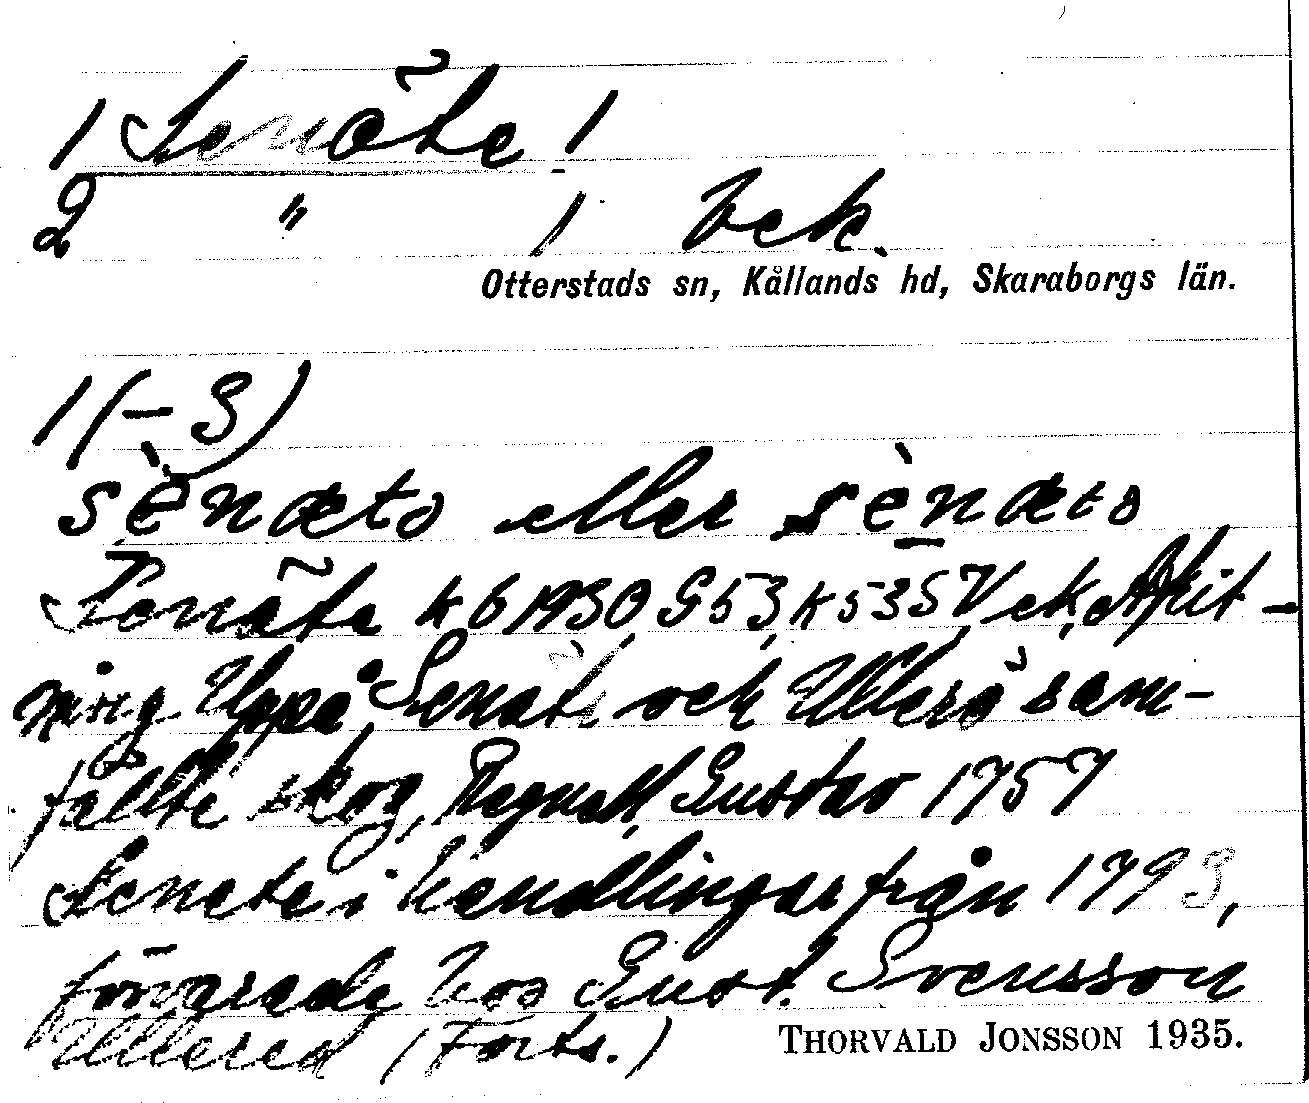 1 Senäte 1
2 " 1 bek.
Otterstads sn, Kållands hd, Skaraborgs län.
1 (-3)
sènæto eller sènæto
Senäte k b 1930, G 53, k 535 Vek, Afrit-
ning Uppå Senäte och Ullerö sam-
fällte skog, Regnell, Gustav 1757
Senate i handlingar från 1793,
förvarade hos Gust. Svensson
Ullered (Forts.)
THORVALD JONSSON 1935.